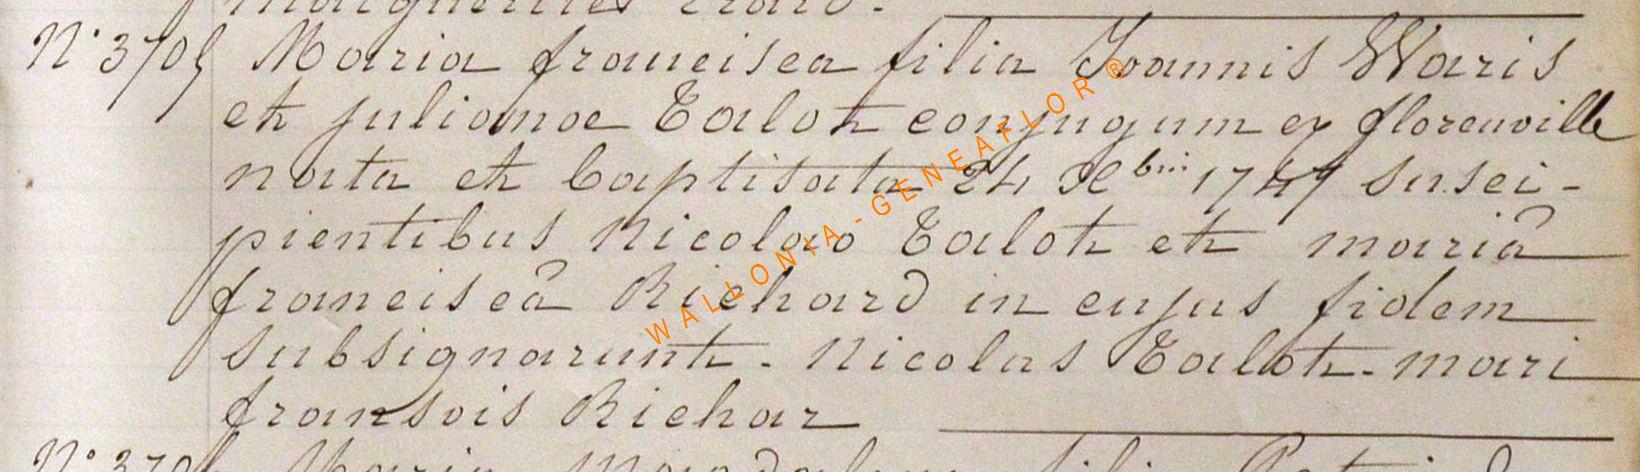 N° 3705 Maria francisca filia Joannis Waris
et julianae Talot conjugum ex florenville
nata et baptisata 24 Xbris 1747 susci-
pientibus Nicolao Talot et mariâ
franciscâ Richard in cujus fidem
subsignarunt. Nicolas Talot. mari
fransois Richar
WALLONIA-GENEAFLOR®